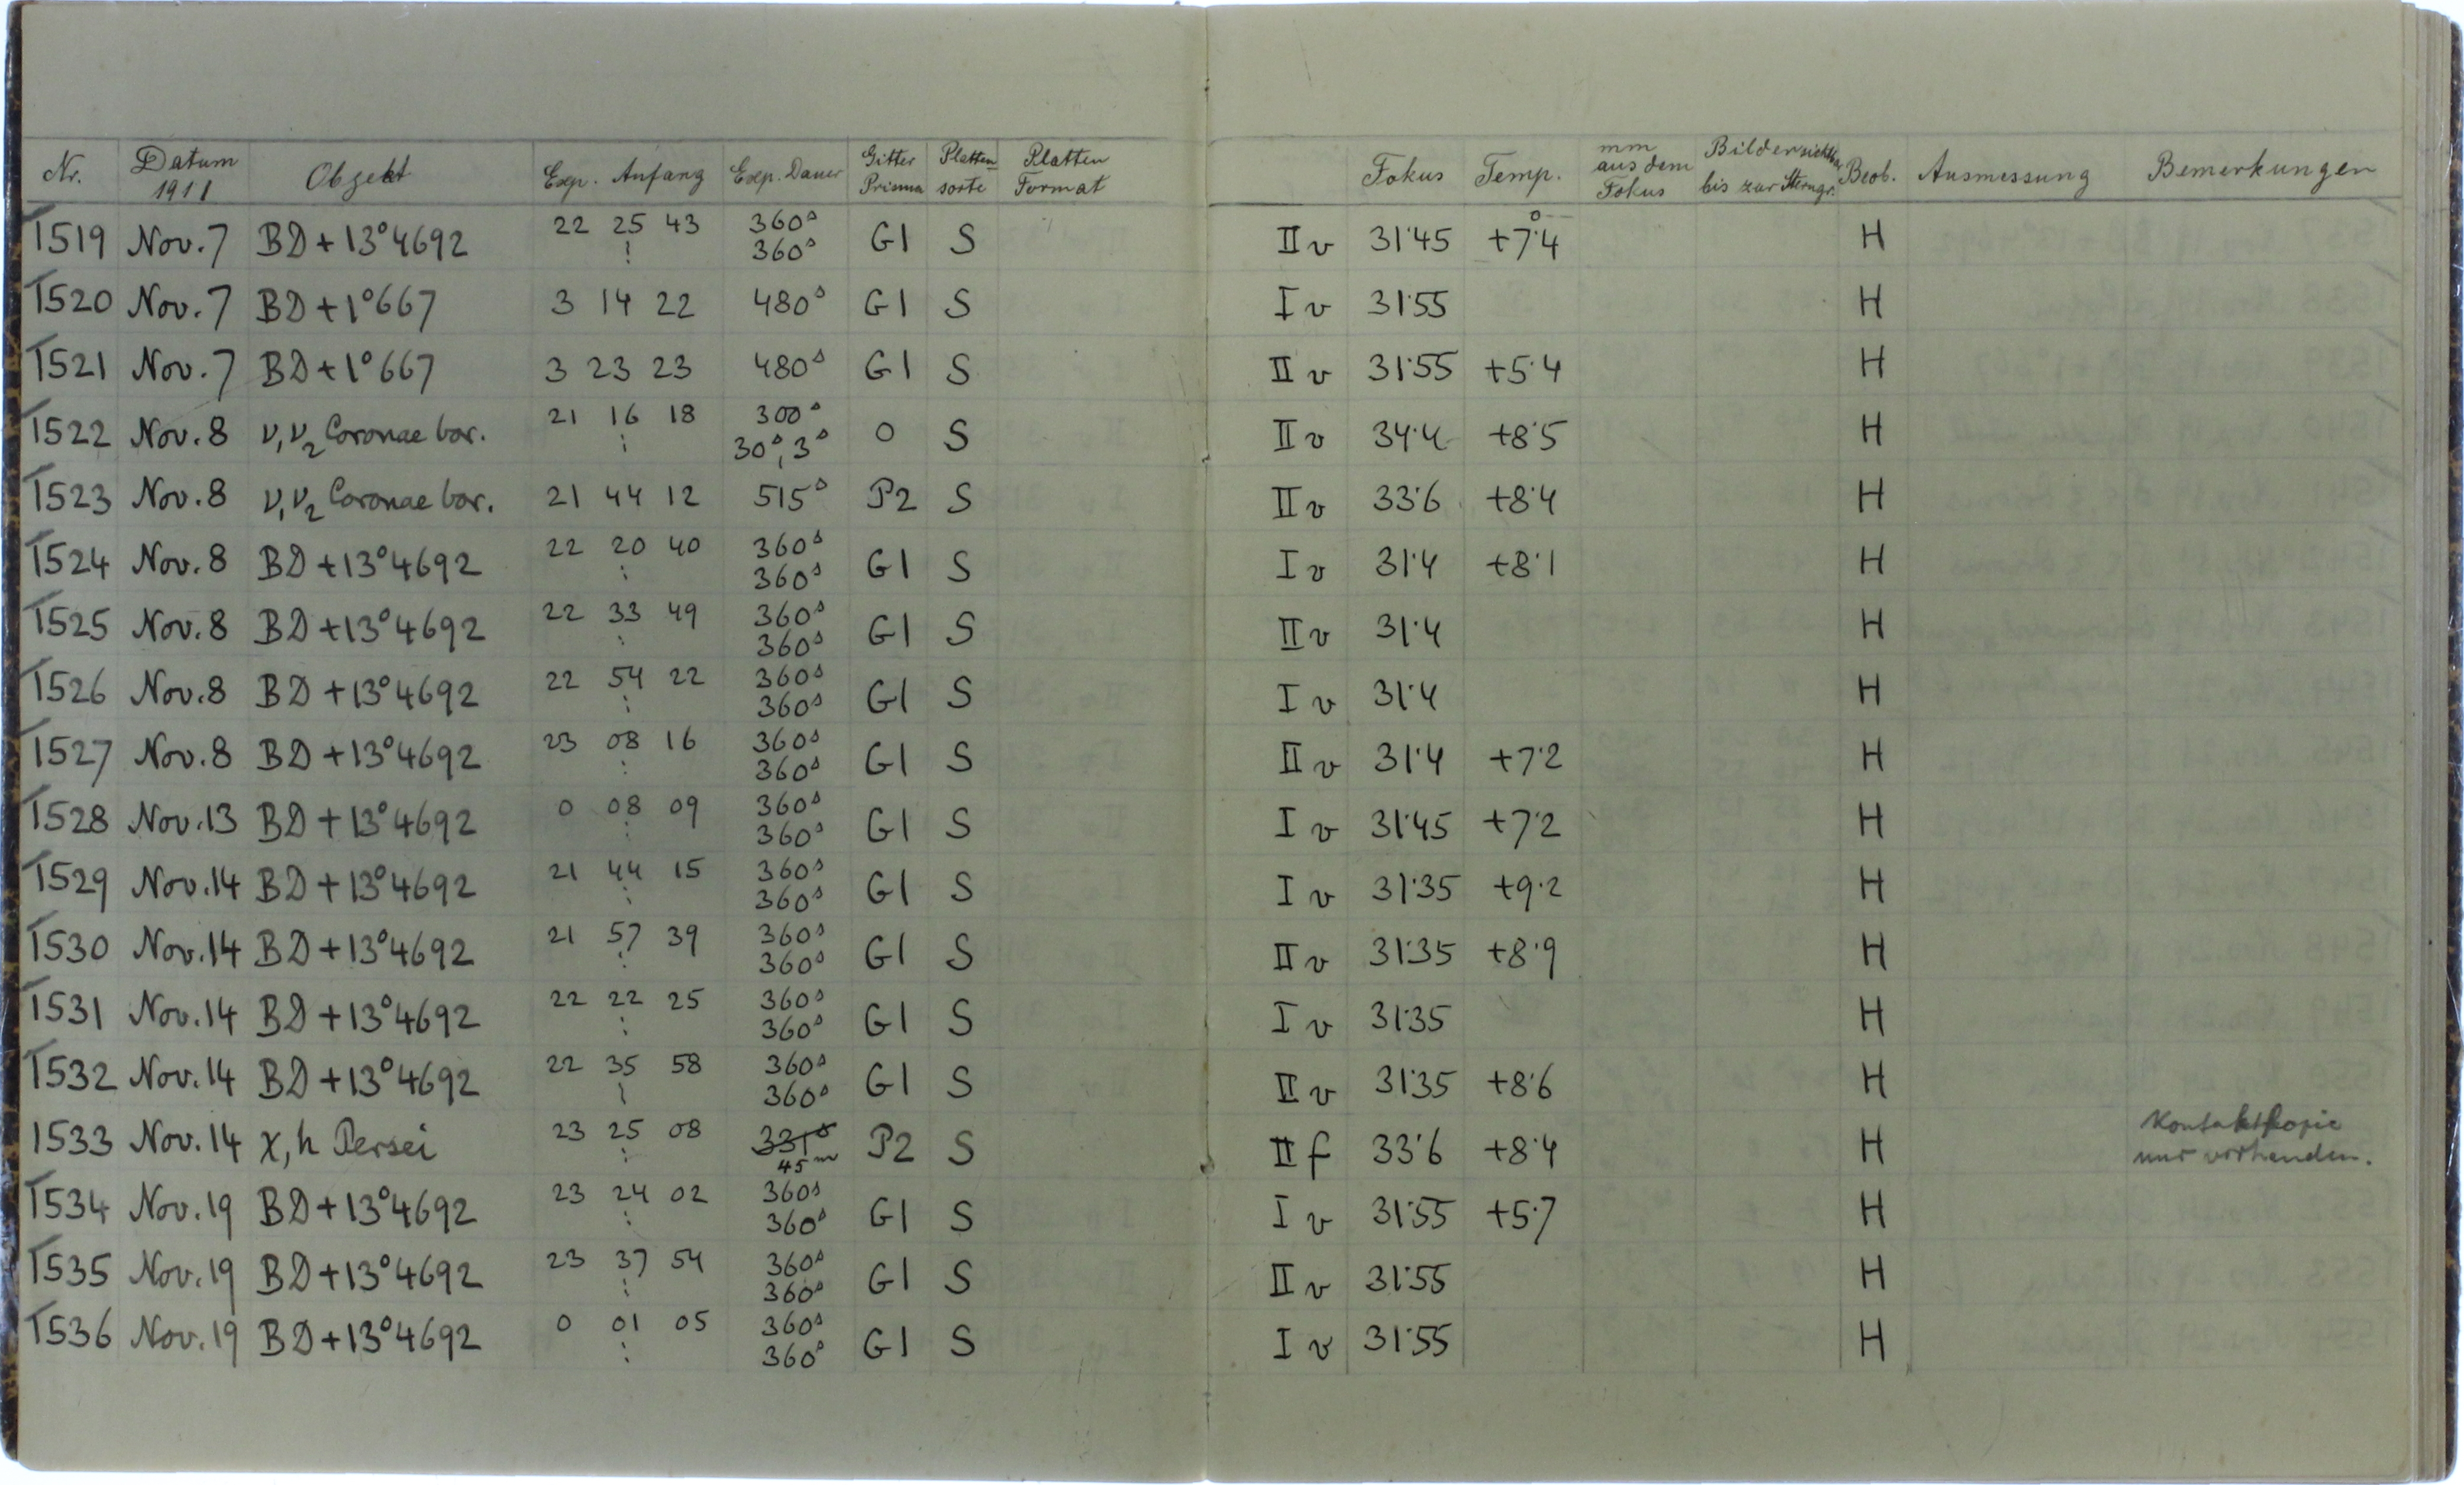 Nr. Datum 1911 Objekt Exp. Anfang Exp. Dauer Gitter Prisma Platten sorte Platten Format Fokus Temp. mm aus dem Fokus Bilder sichtbar bis zur Sterngr. Beob. Ausmessung Bemerkungen
1519 Nov. 7 BD + 13°4692 22 25 43 360s 360s G1 S II v 31·45 +7°4 H
1520 Nov. 7 BD + 1°667 3 14 22 480s G1 S I v 31·55 H
1521 Nov. 7 BD + 1°667 3 23 23 480s G1 S II v 31·55 +5·4 H
1522 Nov. 8 ν1ν2 Coronae bor. 21 16 18 300s 30s, 3s 0 S II v 34·4 +8·5 H
1523 Nov. 8 ν1ν2 Coronae bor. 21 44 12 515s P2 S II v 33·6 +8·4 H
1524 Nov. 8 BD +13°4692 22 20 40 360s 360s G1 S I v 31·4 +8·1 H
1525 Nov. 8 BD +13°4692 22 33 49 360s 360s G1 S II v 31·4 H
1526 Nov. 8 BD +13°4692 22 54 22 360s 360s G1 S I v 31·4 H
1527 Nov. 8 BD +13°4692 23 08 16 360s 360s G1 S II v 31·4 +7·2 H
1528 Nov. 13 BD +13°4692 0 08 09 360s 360s G1 S I v 31·45 +7·2 H
1529 Nov. 14 BD +13°4692 21 44 15 360s 360s G1 S I v 31·35 +9·2 H
1530 Nov. 14 BD +13°4692 21 57 39 360s 360s G1 S II v 31·35 +8·9 H
1531 Nov. 14 BD +13°4692 22 22 25 360s 360s G1 S I v 31·35 H
1532 Nov. 14 BD +13°4692 22 35 58 360s 360s G1 S II v 31·35 +8·6 H
1533 Nov. 14 χ, h Persei 23 25 08 331s 45m P2 S II f 33·6 +8·4 H Kontaktkopie nur vorhanden.
1534 Nov. 19 BD +13°4692 23 24 02 360s 360s G1 S I v 31·55 +5·7 H
1535 Nov. 19 BD +13°4692 23 37 54 360s 360s G1 S II v 31·55 H
1536 Nov. 19 BD +13°4692 0 01 05 360s 360s G1 S I v 31·55 H